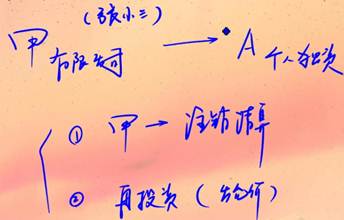 (张小三)
甲 有限公司 → A 个人独资
① 甲 → 注销清算
② 再投资(